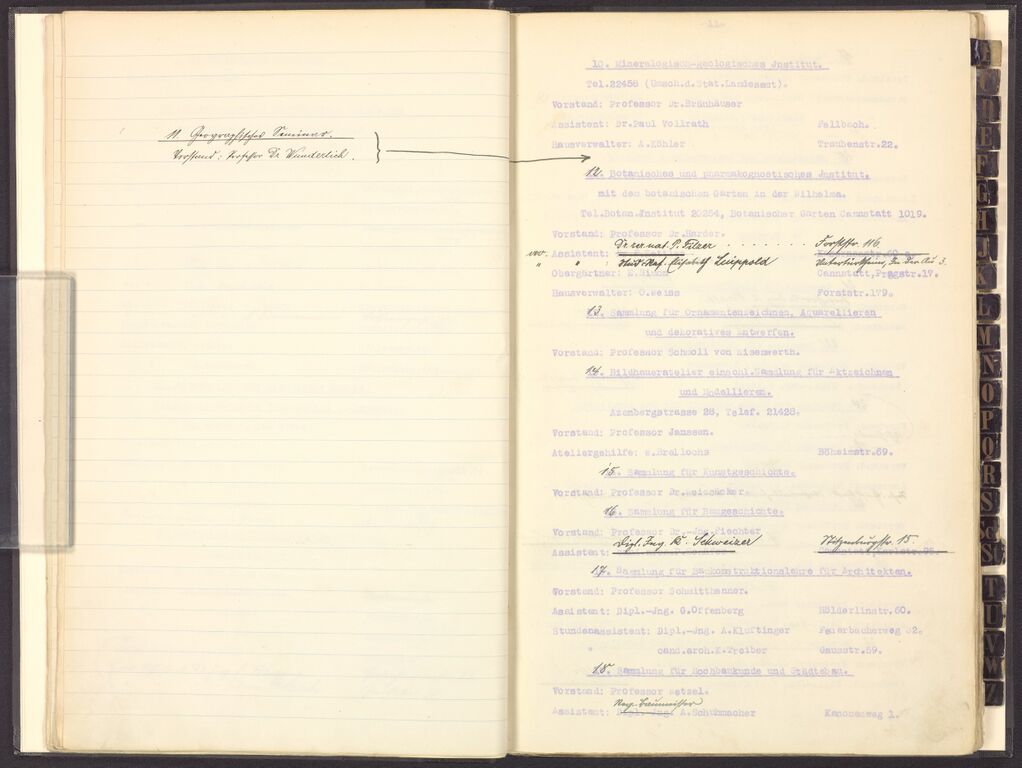 11. Geographisches Seminar.
Vorstand: Professor Dr. Wunderlich.
-11-
10. Mineralogisch-geologisches Jnstitut.
Tel.22458 (Umsch.d.Stat.Landesamt).
Vorstand: Professor Dr.Bräuhäuser
Assistent: Dr.Paul Vollrath Fellbach.
Hausverwalter: A.Köhler Traubenstr.22.
12. Botanisches und pharmakognostisches Jnstitut.
mit dem botanischen Garten in der Wilhelma.
Tel.Botan.Jnstitut 20254, Botanischer Garten Cannstatt 1019.
Vorstand: Professor Dr.Harder.
Assistent: Dr. rer. nat. P. Filzer Forststr. 116
Elisabeth Luippold Untertürkheim, In der Au 3.
Obergärtner: E.Simon Cannstatt,Pragstr.17.
Hausverwalter: O.Weiss Forststr.179.
13. Sammlung für Ornamentenzeichnen, Aquarellieren
und dekoratives Entwerfen.
Vorstand: Professor Schmoll von Eisenwerth.
14. Bildhaueratelier einschl.Sammlung für Aktzeichnen
und Modellieren.
Azenbergstrasse 28, Telef. 21428.
Vorstand: Professor Janssen.
Ateliergshilfe: E.Brellochs Böheimstr.69.
15. Sammlung für Kunstgeschichte.
Vorstand: Professor Dr.Weizsäcker
16. Sammlung für Baugeschichte.
Vorstand: Professor Dr.-Jng.Fiechter
Assistent: Dipl. Ing. K. Schweizer Nitzenburgstr. 15.
17. Sammlung für Baukonstruktionslehre für Architekten.
Vorstand: Professor Schmitthenner.
Assistent: Dipl.-Jng. G.Offenberg Hölderlinstr.60.
Stundenassistent: Dipl.-Jng. A.Kluftinger Feuerbacherweg 32.
" cand.arch.K.Treiber Gausstr.59.
18. Sammlung für Hochbaukunde und Städtebau.
Vorstand: Professor Wetzel.
Reg. Baumeister
Assistent: Dipl.-Jng. A.Schuhmacher Kanonenweg 1.
C
D
E
F
G
H
J
K
L
M
N
O
P
Q
R
S
Sch
St
T
U
V
W
Z